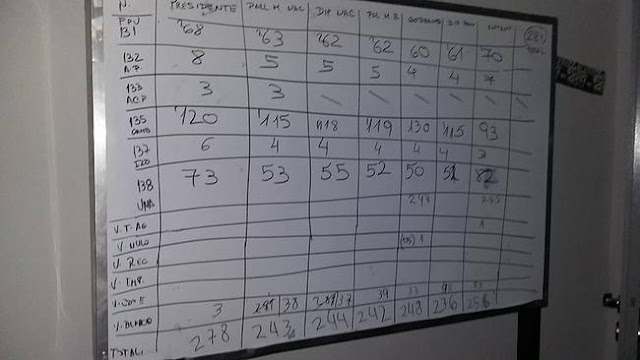 N. PRESIDENTE PARL M. NAC DIP NAC PARL M.R GOBERNADOR DIP PROV 285 TOTAL
FPV 131 68 63 62 62 60 61 70
132 A.P. 8 5 5 5 4 4
133 ACP 3 3 \ \ \ \ \ \
135 CAMB 120 115 118 119 130 115 93
137 IZQ 6 4 4 4 4 4 3
138 UNA 73 53 55 52 50 51 82
247
V. T. AG 1
V. NULO 1
V. REC
V. IMP.
38 37 34
V. BLANCO 3
TOTAL: 278 243 244 242 248 236 256